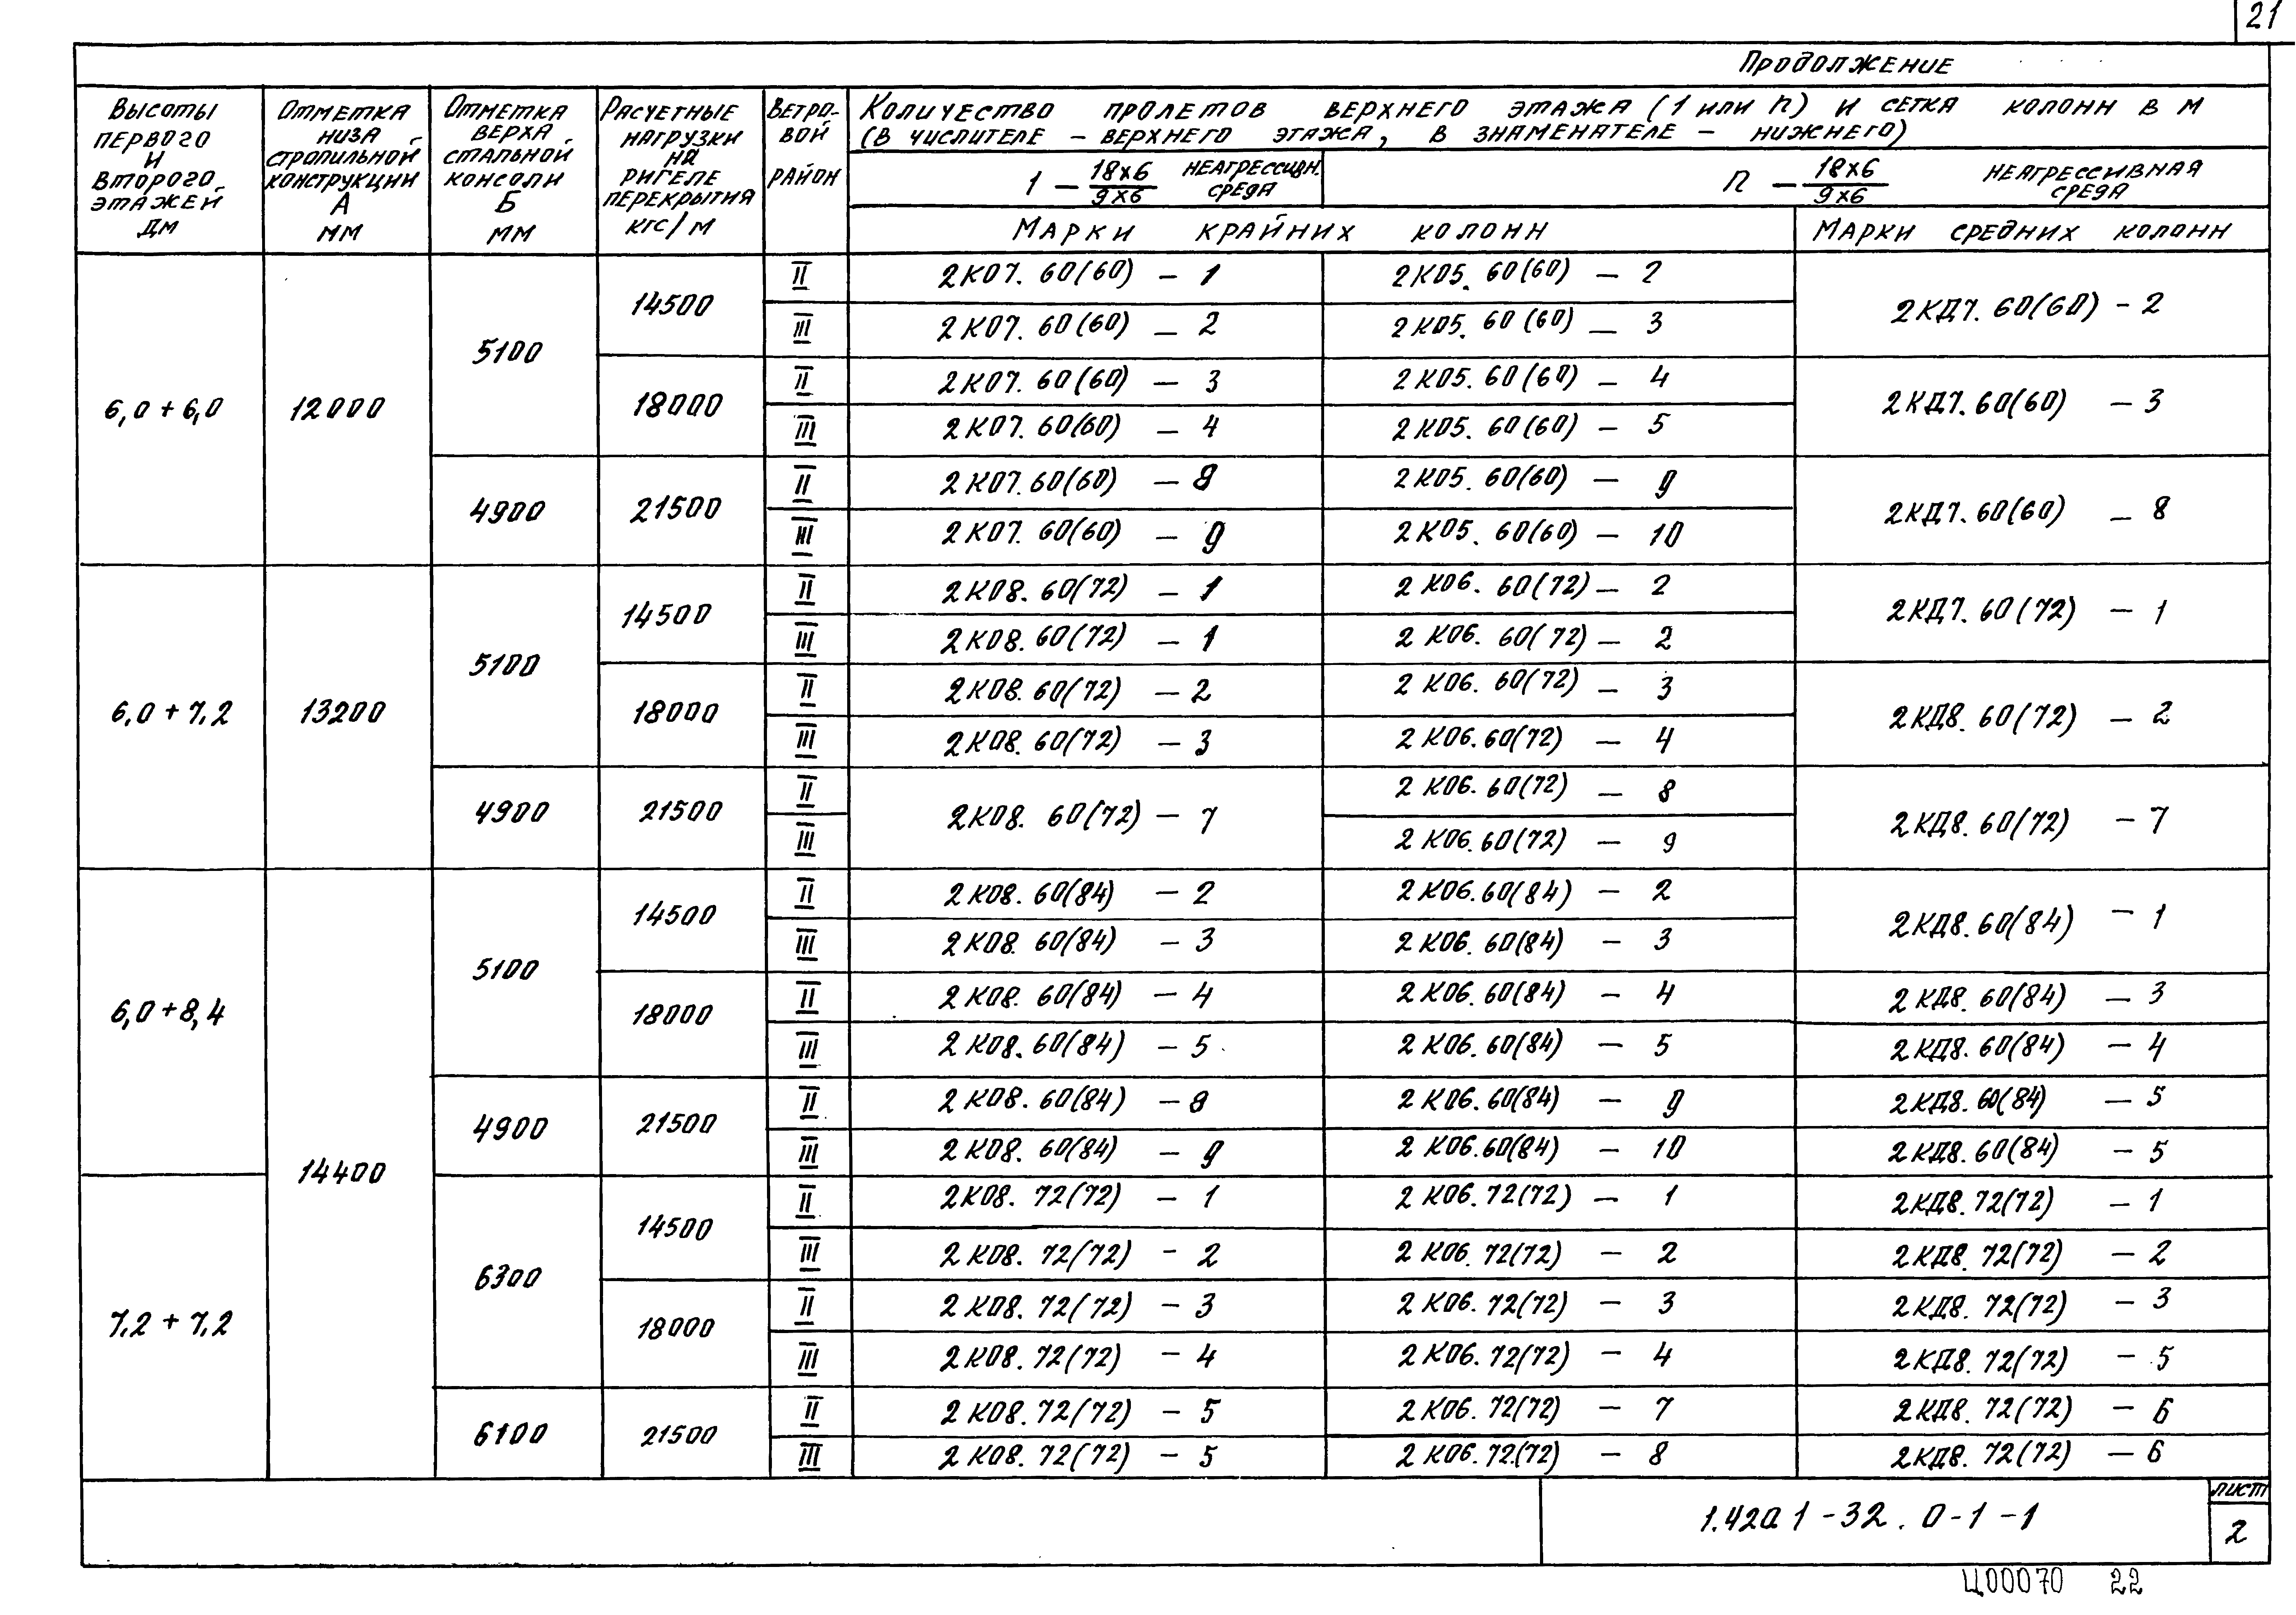 21
Продолжение
Высоты первого и второго этажей дм
Отметка низа стропильной конструкции А мм
Отметка верха стальной консоли Б мм
Расчетные нагрузки на ригеле перекрытия кгс/м
Ветровой район
Количество пролетов верхнего этажа (1 или n) и сетка колонн в м
(в числителе – верхнего этажа, в знаменателе – нижнего)
1 – 18х6/9х6 неагрессивн. среда
n – 18х6/9х6 неагрессивная среда
Марки крайних колонн
Марки средних колонн
6,0 + 6,0 12000 5100 14500 II 2К07.60(60) – 1 2К05.60(60) – 2 2КД7.60(60) – 2
III 2К07.60(60) – 2 2К05.60(60) – 3
18000 II 2К07.60(60) – 3 2К05.60(60) – 4 2КД7.60(60) – 3
III 2К07.60(60) – 4 2К05.60(60) – 5
4900 21500 II 2К07.60(60) – 8 2К05.60(60) – 9 2КД7.60(60) – 8
III 2К07.60(60) – 9 2К05.60(60) – 10
6,0 + 7,2 13200 5100 14500 II 2К08.60(72) – 1 2К06.60(72) – 2 2КД7.60(72) – 1
III 2К08.60(72) – 1 2К06.60(72) – 2
18000 II 2К08.60(72) – 2 2К06.60(72) – 3 2КД8.60(72) – 2
III 2К08.60(72) – 3 2К06.60(72) – 4
4900 21500 II 2К08.60(72) – 7 2К06.60(72) – 8 2КД8.60(72) – 7
III 2К06.60(72) – 9
6,0 + 8,4 14400 5100 14500 II 2К08.60(84) – 2 2К06.60(84) – 2 2КД8.60(84) – 1
III 2К08.60(84) – 3 2К06.60(84) – 3
18000 II 2К08.60(84) – 4 2К06.60(84) – 4 2КД8.60(84) – 3
III 2К08.60(84) – 5 2К06.60(84) – 5 2КД8.60(84) – 4
4900 21500 II 2К08.60(84) – 8 2К06.60(84) – 9 2КД8.60(84) – 5
III 2К08.60(84) – 9 2К06.60(84) – 10 2КД8.60(84) – 5
7,2 + 7,2 6300 14500 II 2К08.72(72) – 1 2К06.72(72) – 1 2КД8.72(72) – 1
III 2К08.72(72) – 2 2К06.72(72) – 2 2КД8.72(72) – 2
18000 II 2К08.72(72) – 3 2К06.72(72) – 3 2КД8.72(72) – 3
III 2К08.72(72) – 4 2К06.72(72) – 4 2КД8.72(72) – 5
6100 21500 II 2К08.72(72) – 5 2К06.72(72) – 7 2КД8.72(72) – 6
III 2К08.72(72) – 5 2К06.72(72) – 8 2КД8.72(72) – 6
1.420.1 – 32.0-1-1
лист
2
Ц00070 22